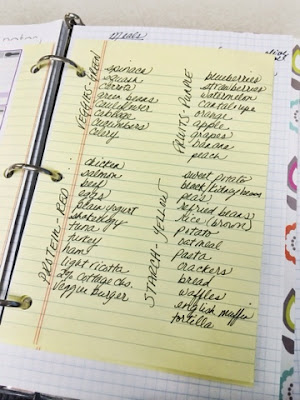 Meals
VEGGIES-GREEN
spinach
squash
carrots
green beans
cauliflower
cabbage
cucumbers
celery
FRUITS-PURPLE
blueberries
strawberries
watermelon
cantalope
orange
apple
grapes
banana
peach
PROTEIN-RED
chicken
salmon
beef
eggs
plain yogurt
shakeology
tuna
turkey
ham
light ricotta
2% cottage chs.
veggie burger
STARCH-YELLOW
sweet potato
black/kidney beans
peas
refried beans
rice (brown)
potato
oatmeal
pasta
crackers
bread
waffles
english muffin
tortilla